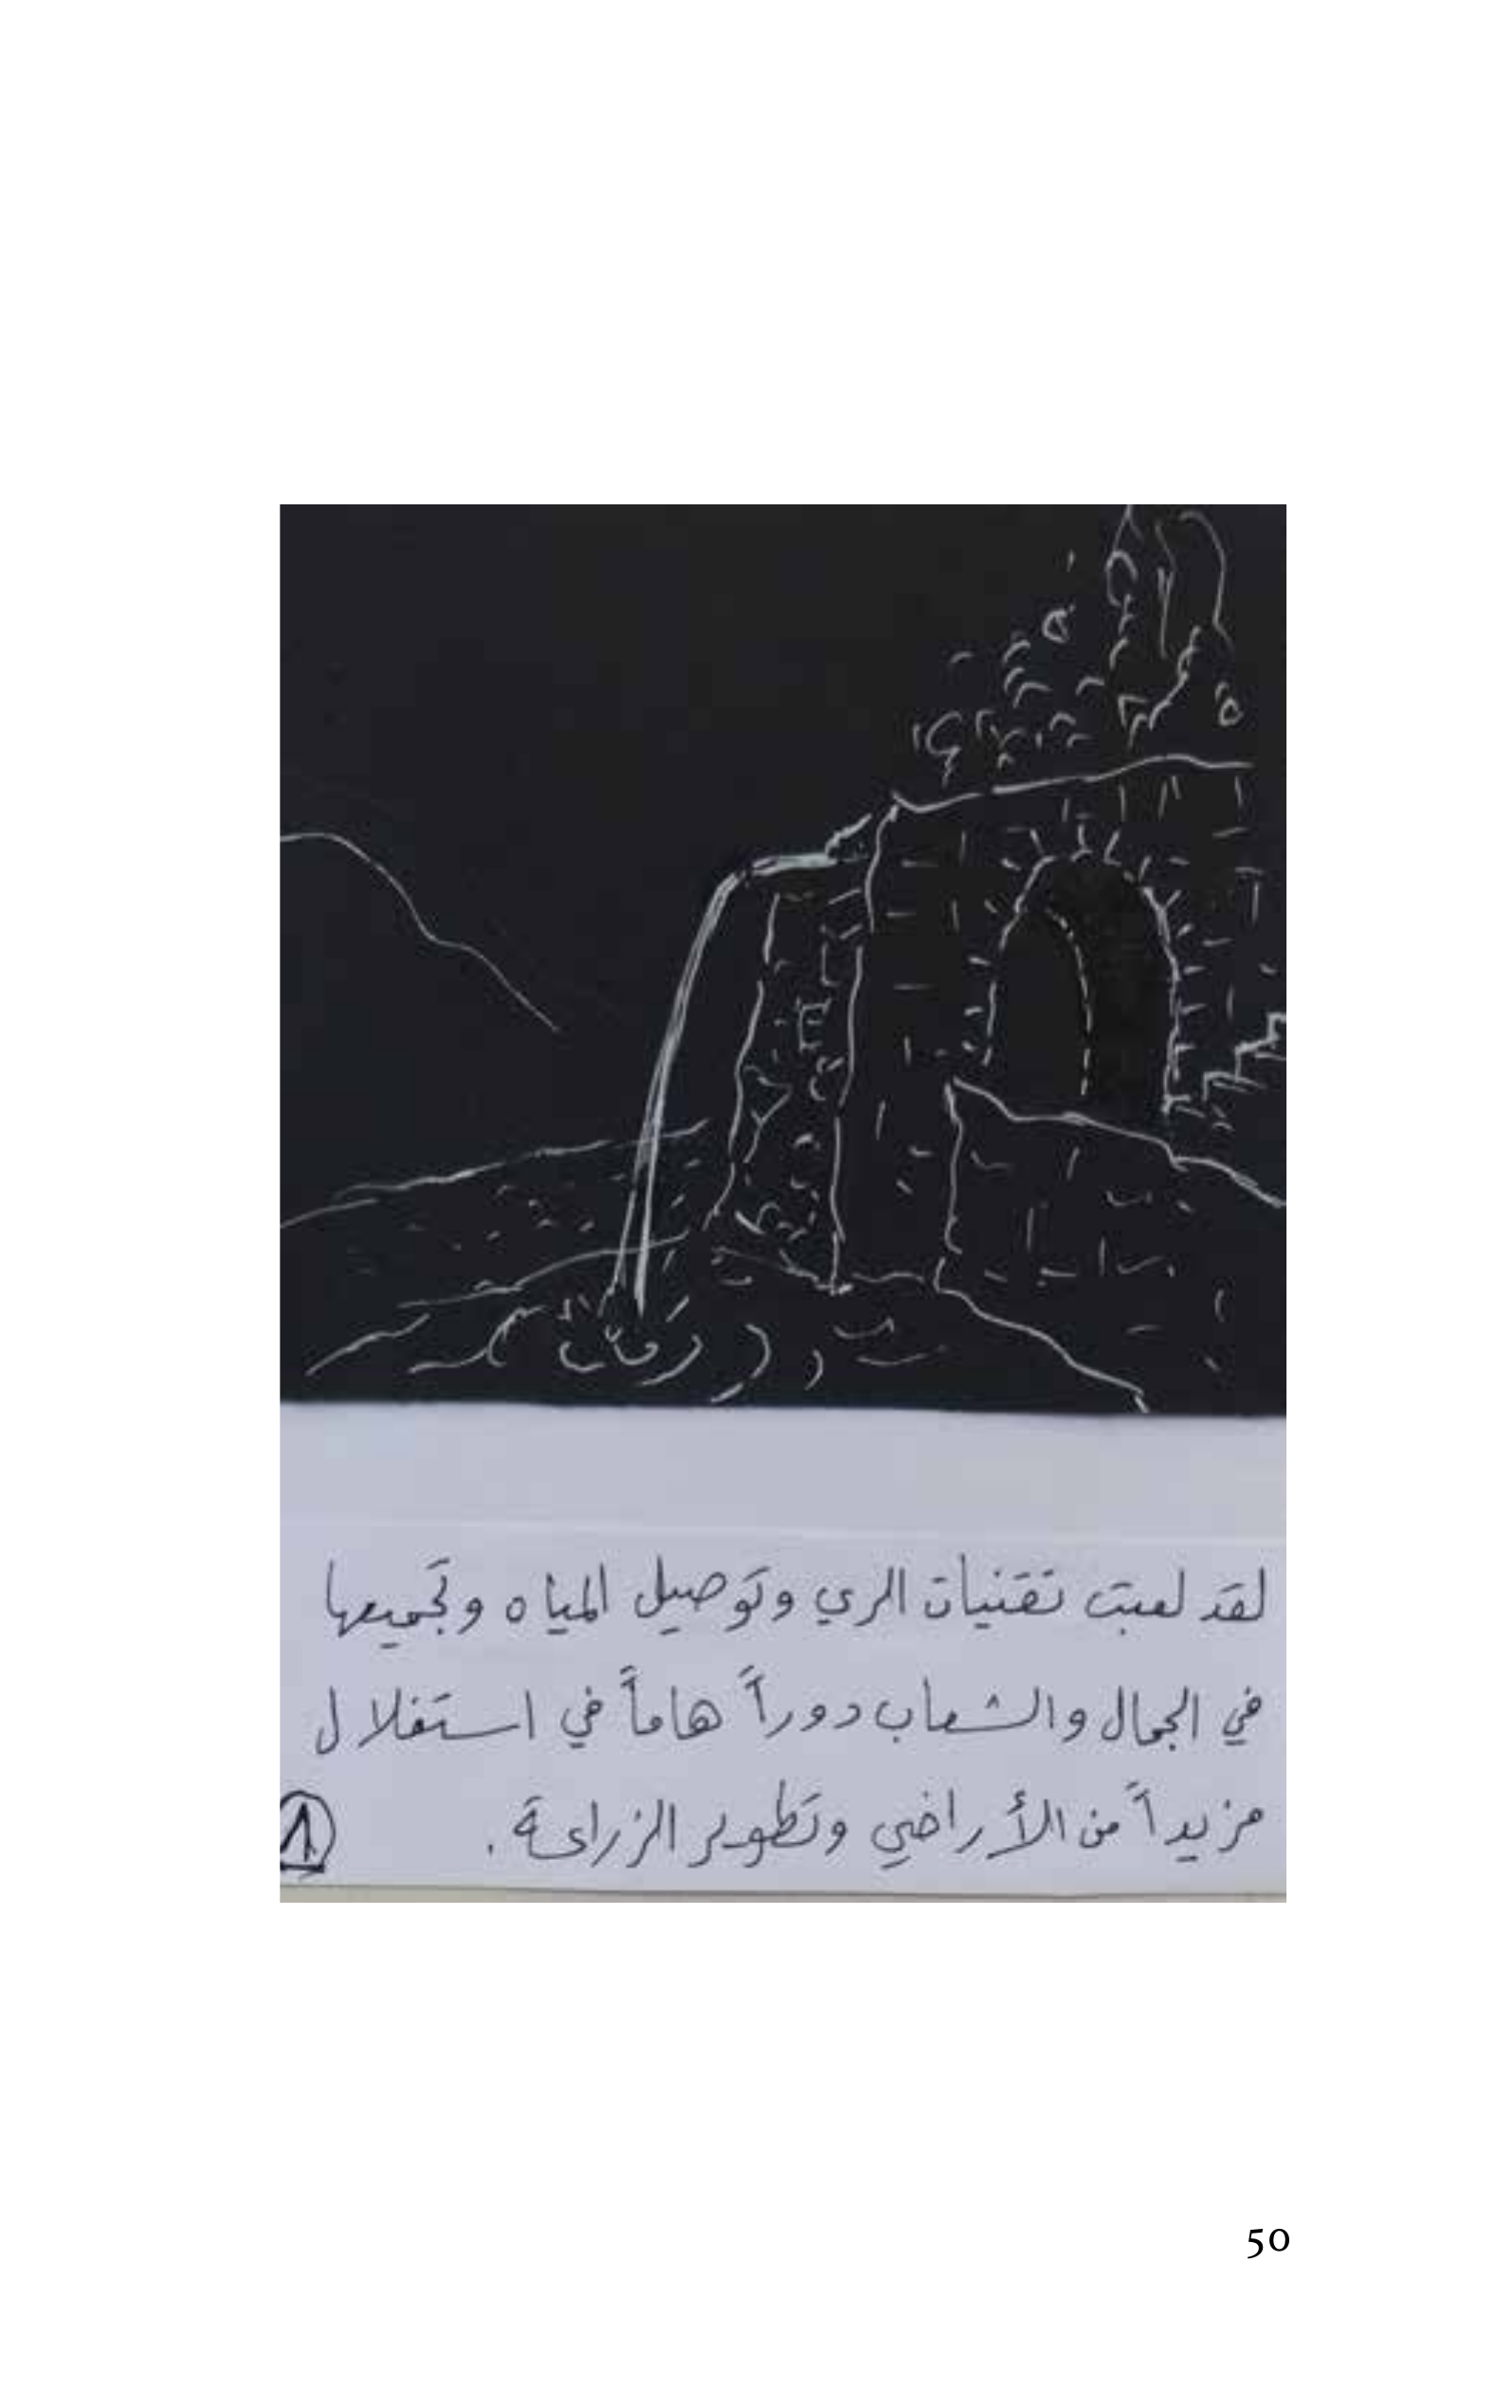 لقد لعبت تقنيات الري وتوصيل المياه وتجميعها
في الجبال والشعاب دوراً هاماً في استغلال
مزيداً من الأراضي وتطوير الزراعة .
50